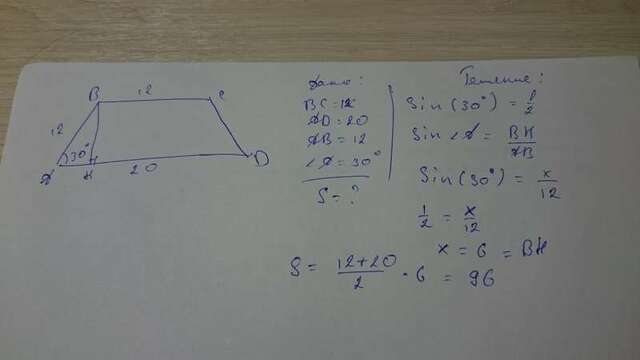 B 12 C
12
30°
A H 20 D
Дано:
BC=12
AD=20
AB=12
∠A=30°
S=?
Решение:
Sin(30°)=1/2
Sin∠A=BH/AB
Sin(30°)=x/12
1/2=x/12
x=6=BH
S=(12+20)/2·6=96